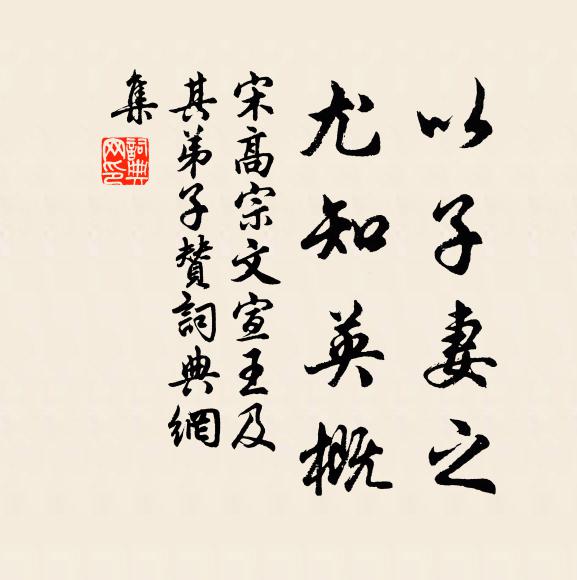 以子妻之
尤知英概
宋高宗文宣王及
其弟子贊詞典網
集
詞典網印